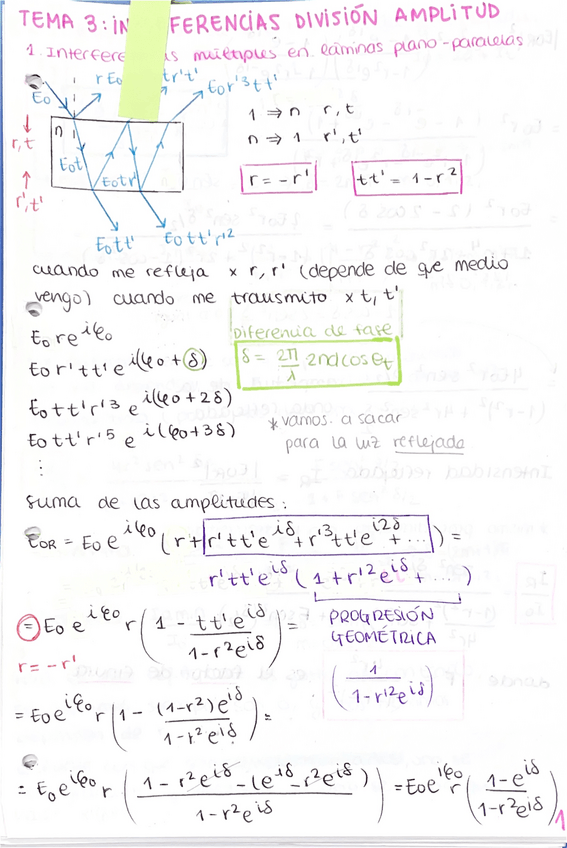 TEMA 3: IN ERFERENCIAS DIVISIÓN AMPLITUD
1. Interfere as múltiples en láminas plano-paralelas
E₀ rE₀ tr't' E₀r'³tt'
1 ⇒ n r, t
n ⇒ 1 r', t'
r, t
n
E₀t E₀tr'
r', t'
r = -r' tt' = 1-r²
E₀tt' E₀tt'r'²
cuando me refleja x r, r' (depende de que medio
vengo) cuando me transmito x t, t'
E₀ r e^{iφ₀}
Diferencia de fase
E₀ r' tt' e^{i(φ₀+δ)}
δ = 2π/λ 2nd cos θt
E₀ tt' r'³ e^{i(φ₀+2δ)}
E₀ tt' r'⁵ e^{i(φ₀+3δ)}
* vamos a sacar
para la luz reflejada
⋮
suma de las amplitudes:
E₀R = E₀ e^{iφ₀} (r + r'tt'e^{iδ} + r'³tt'e^{i2δ} + ...) =
r'tt'e^{iδ} (1 + r'²e^{iδ} + ...)
= E₀ e^{iφ₀} r (1 - tt'e^{iδ} / 1-r²e^{iδ}) =
PROGRESIÓN
GEOMÉTRICA
r = -r'
(1 / 1-r'²e^{iδ})
= E₀e^{iφ₀} r (1 - (1-r²)e^{iδ} / 1-r²e^{iδ}) =
= E₀e^{iφ₀} r (1 - r²e^{iδ} - (e^{iδ} - r²e^{iδ}) / 1-r²e^{iδ}) = E₀e^{iφ₀} r (1-e^{iδ} / 1-r²e^{iδ})
1